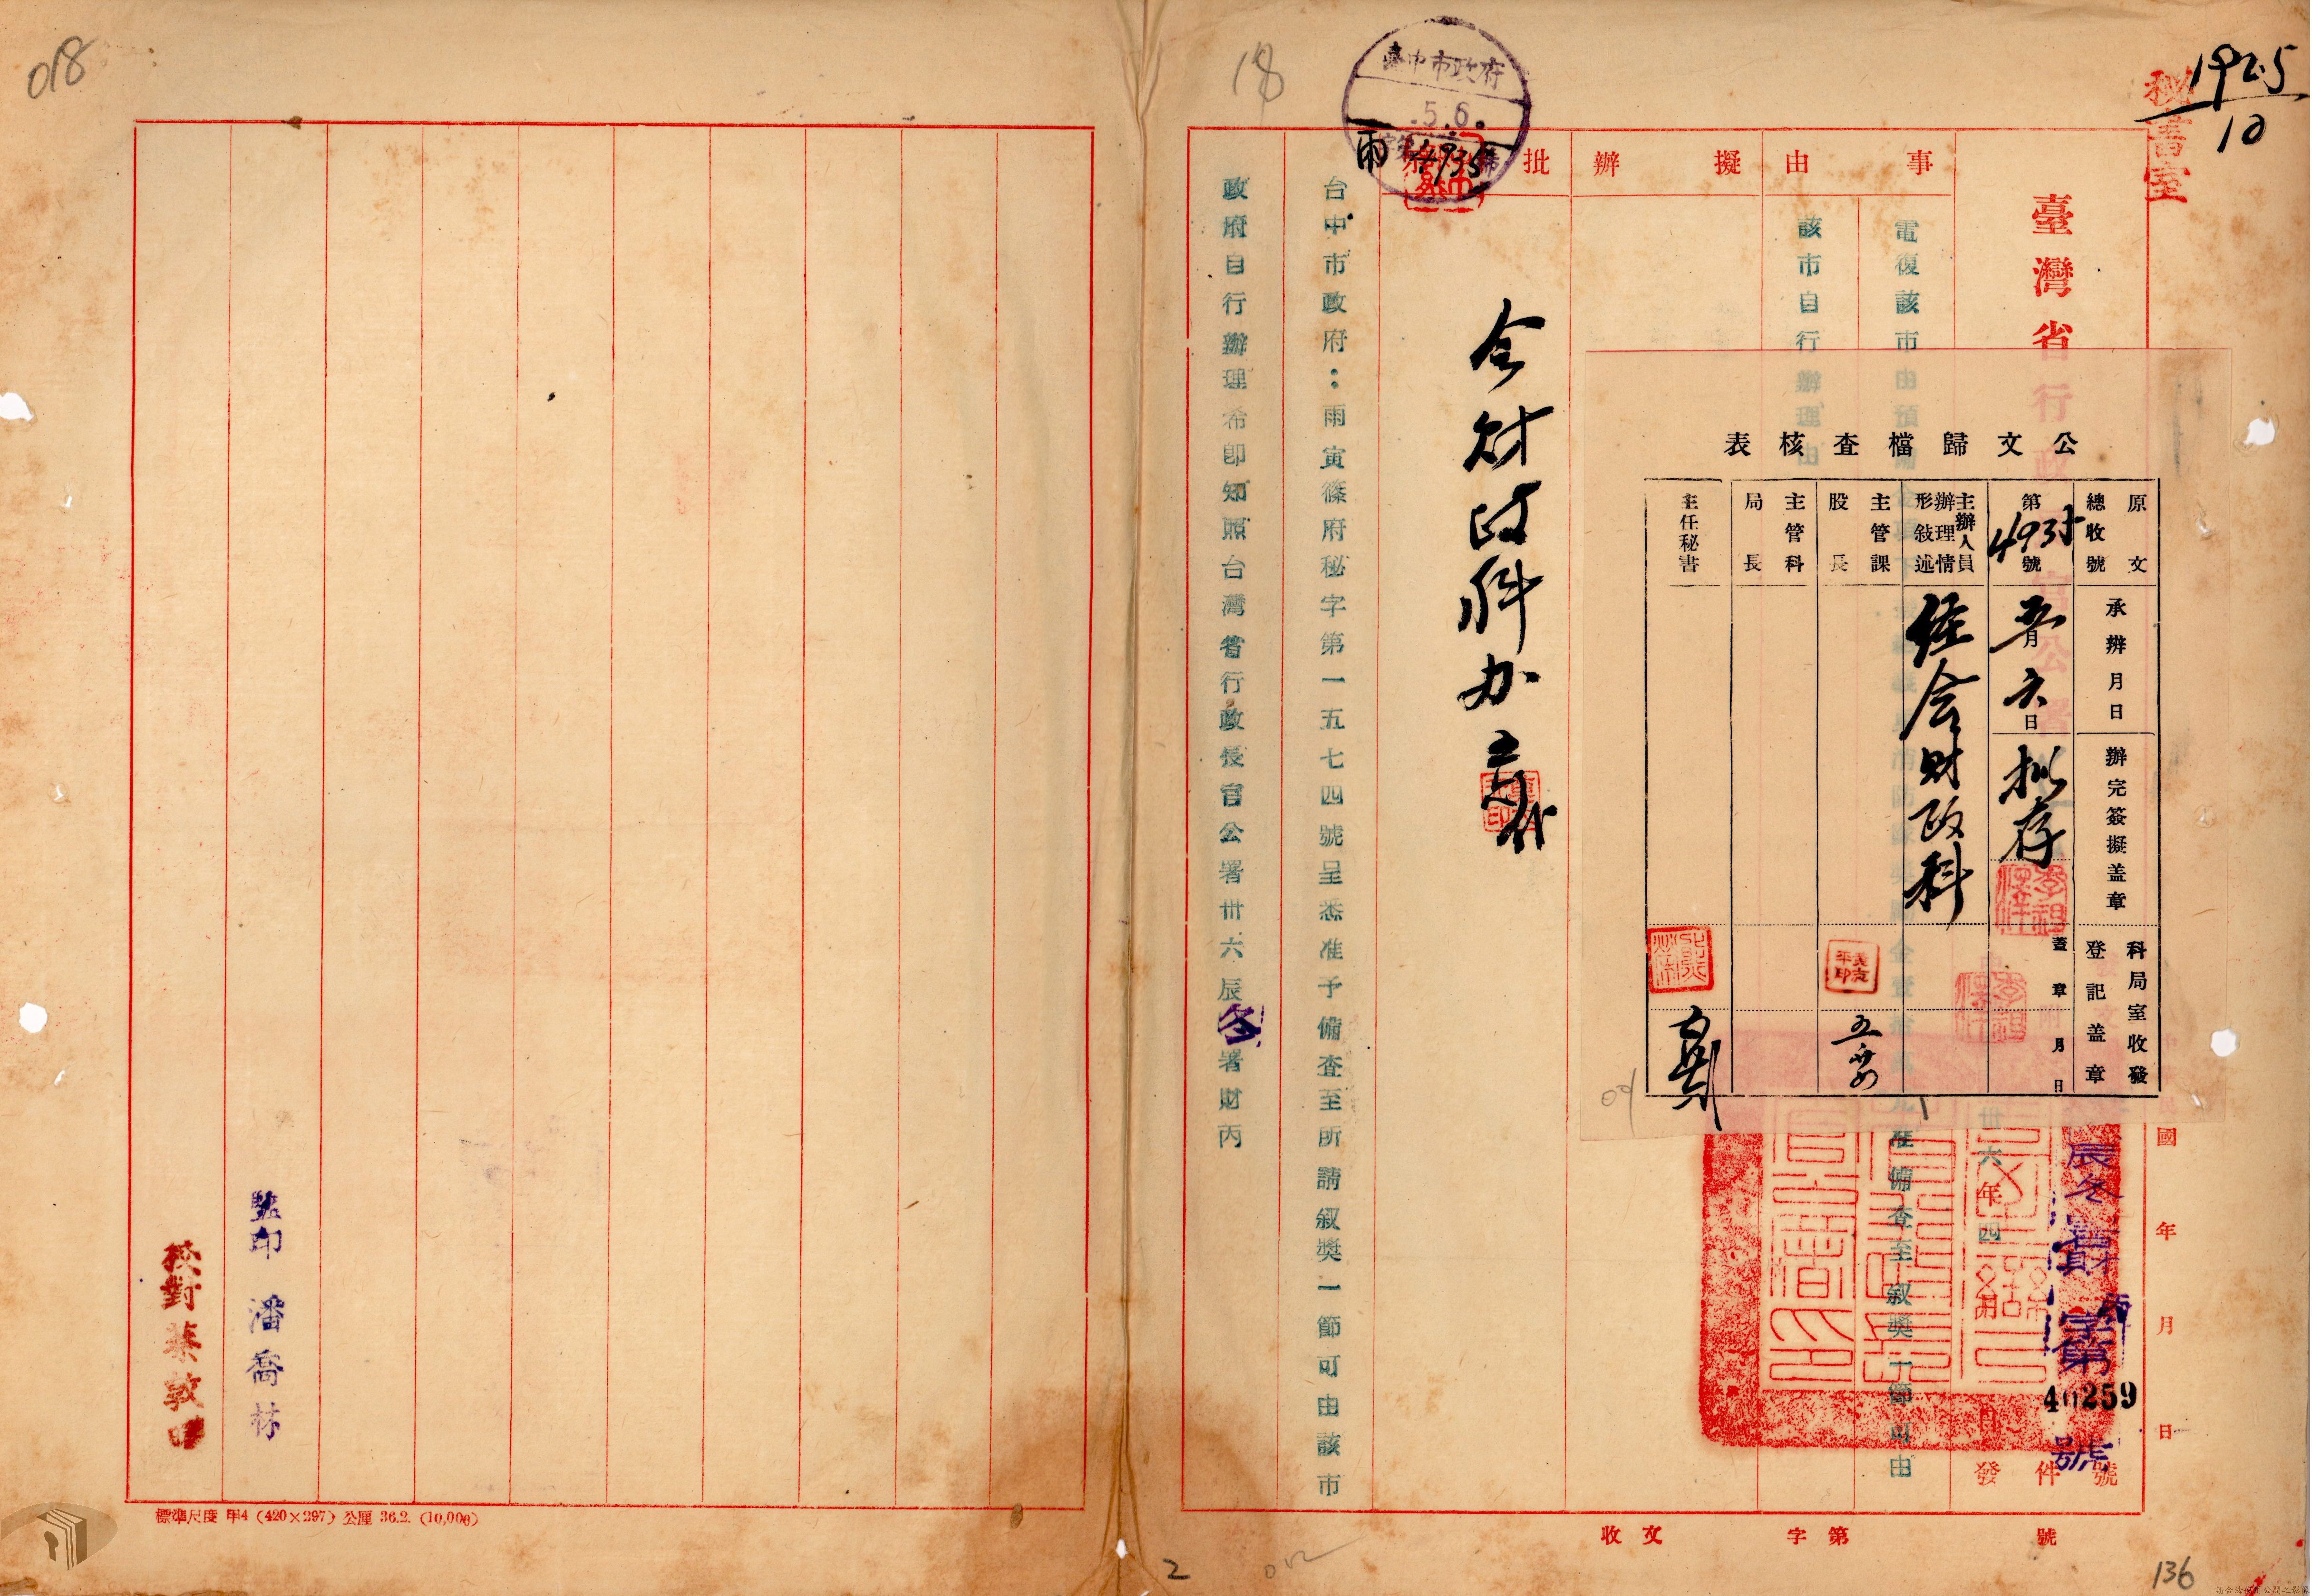 018
18
192.5
10
秘書室
臺中市政府
5.6.
雨 4935
臺灣省行政
事由
擬辦
批
電復該市由預
准備查至叙獎一節可由
該市自行辦理由
公文歸檔查核表
原文總收號
第4935號
主辦人員辦理情形敍述
主管課股長
主管科局長
主任秘書
承辦月日
五月六日
辦完簽擬盖章
拟存
科局室收發登記盖章
蓋章 月 日
經會財政科
令財政科办
台中市政府：雨寅篠府秘字第一五七四號呈悉准予備查至所請叙獎一節可由該市
政府自行辦理希卽知照台灣省行政長官公署卅六辰冬署財丙
國 年 月 日
卅六年四
辰冬署財丙字第
40259
號
發
件
號
監印 潘喬林
校對 葉敦
標準尺度 甲4 (420×297) 公厘 36.2. (10,000)
收文
字第
號
2
136